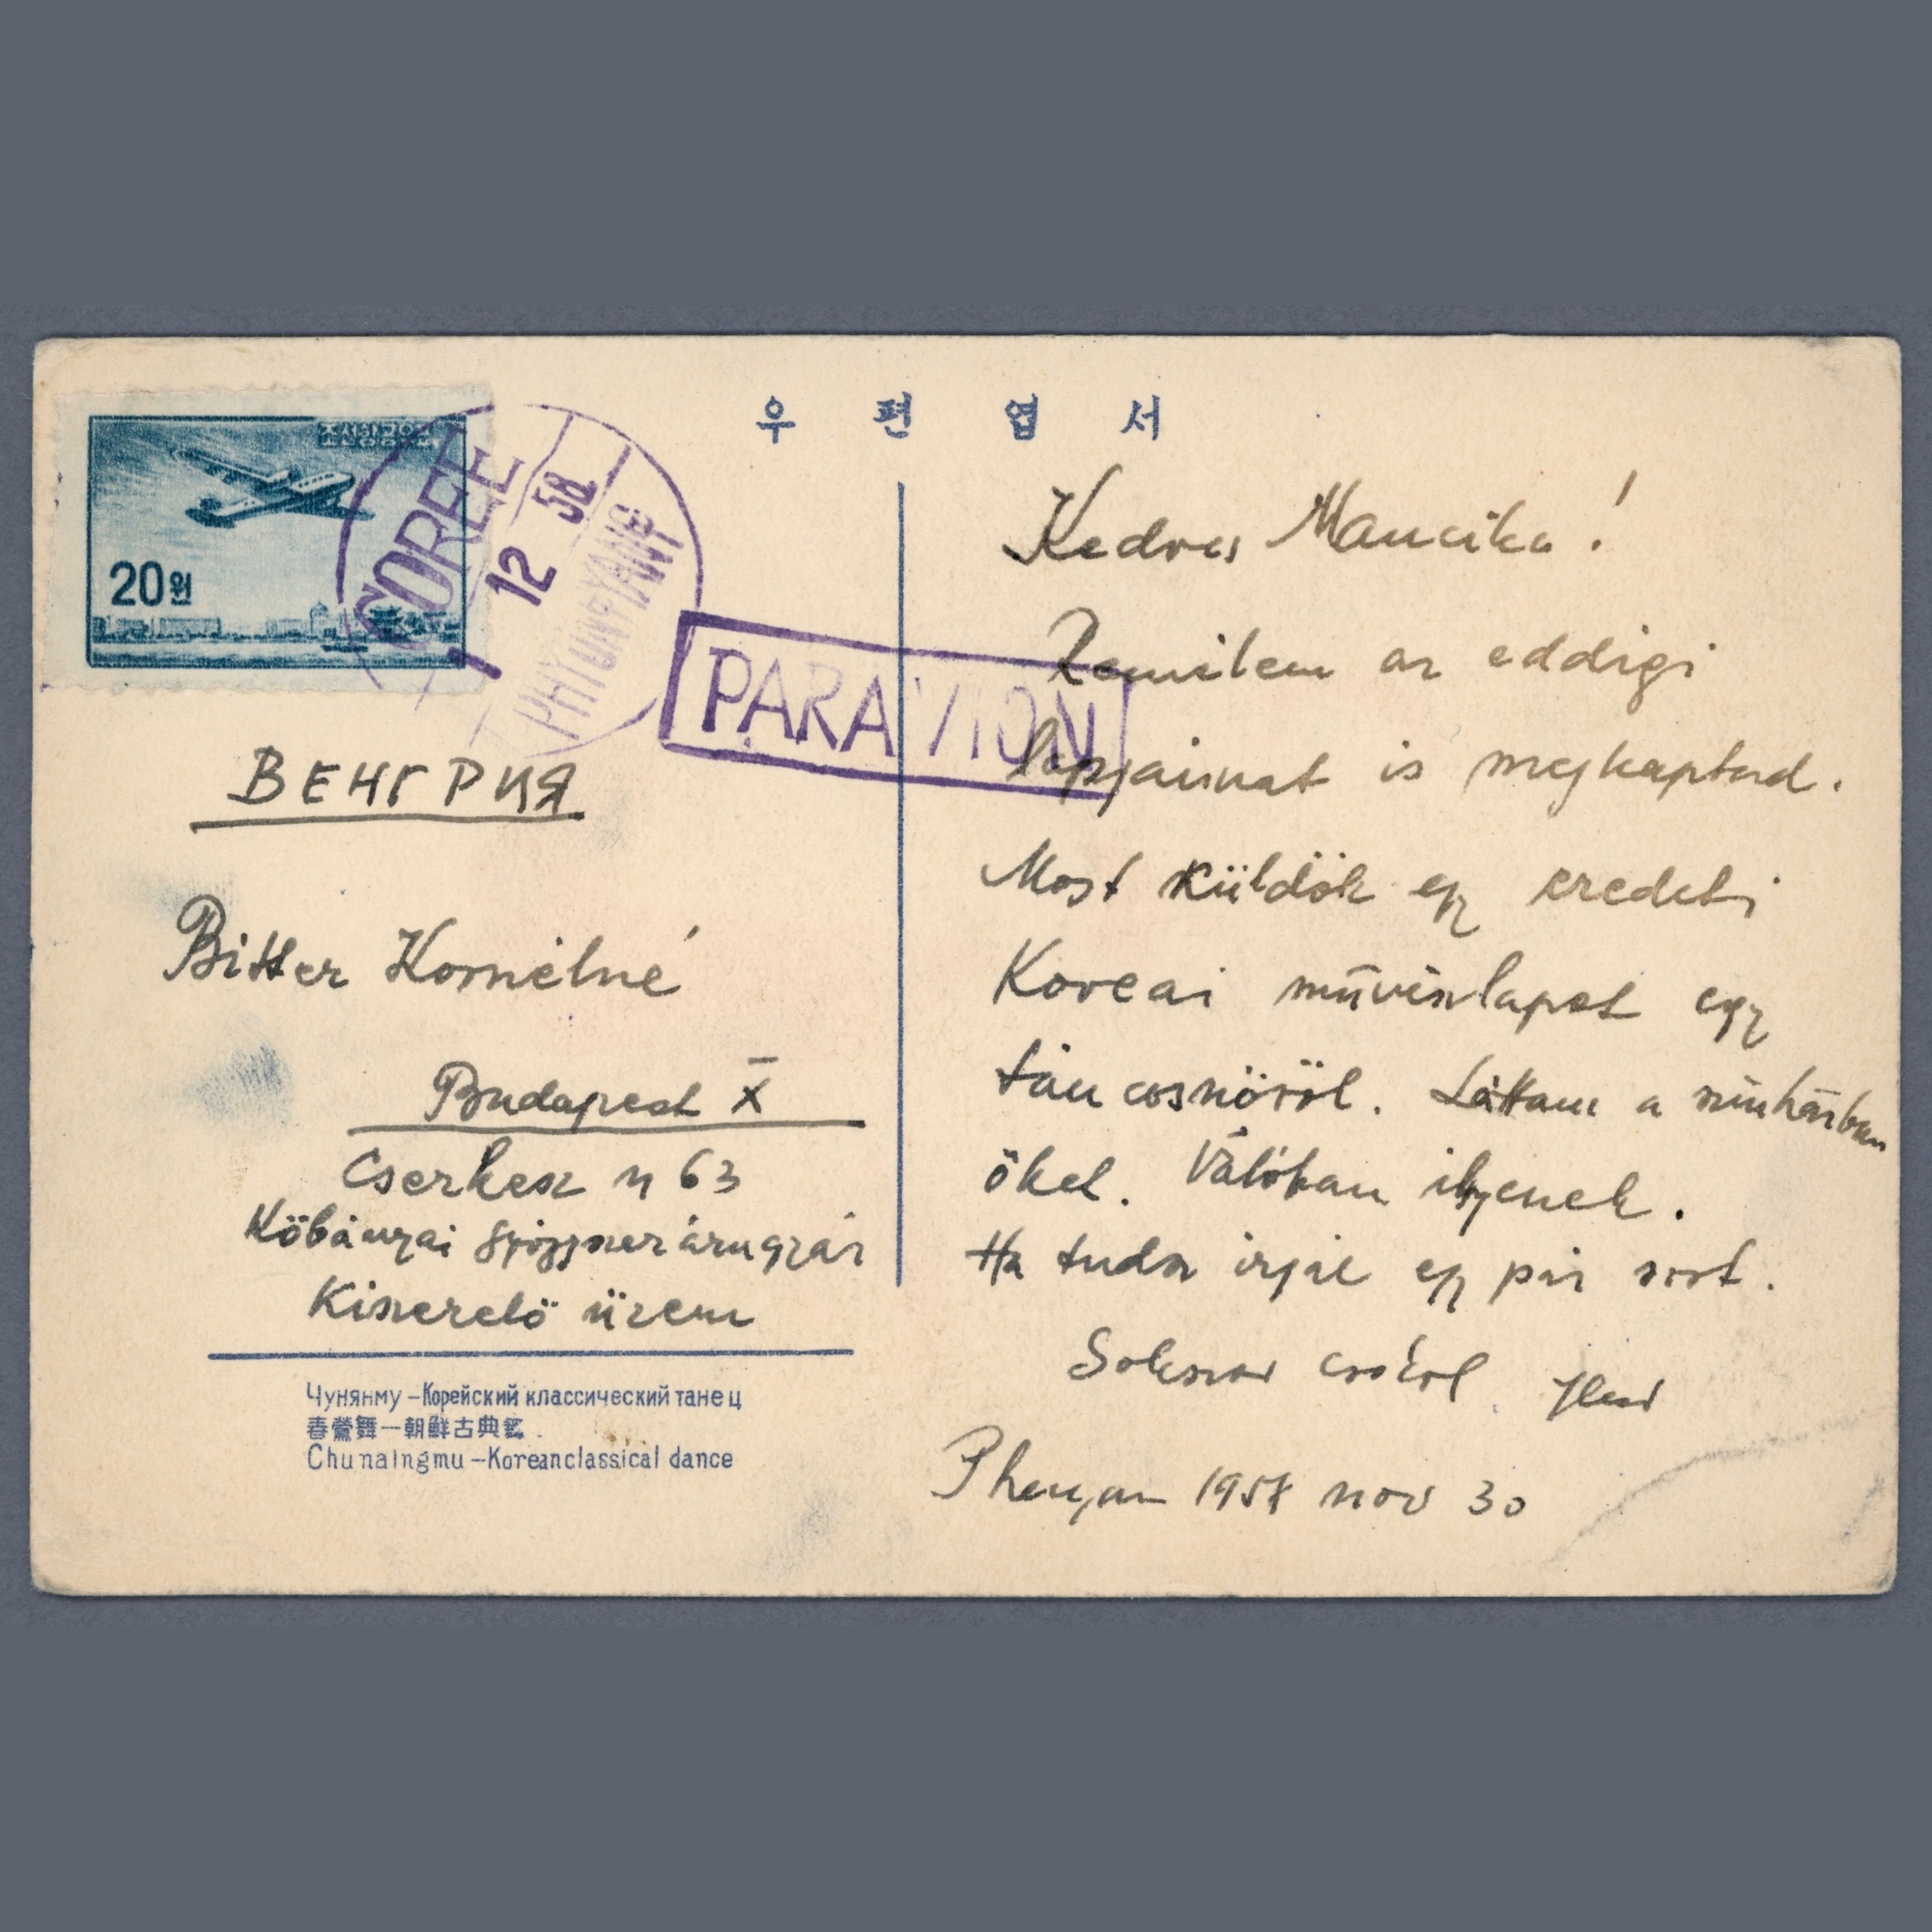 우편엽서
20원
COREE
12 58
PHYONGYANG
PAR AVION
ВЕНГРИЯ
Bitter Kornélné
Budapest X
Cserkesz u 63
Kőbányai gyógyszerárugyár
Kiszerelő üzem
Чунянму – Корейский классический танец
春鶯舞 — 朝鮮古典
Chunaingmu – Korean classical dance
Kedves Mancika!
Remélem az eddigi
lapjaimat is megkaptad.
Most küldök egy eredeti
Koreai művészlapot egy
táncosnőről. Láttam a színházban
őket. Valóban ilyenek.
Ha tudsz írjál egy pár sort.
Sokszor csókol
Phenyan 195 nov 30